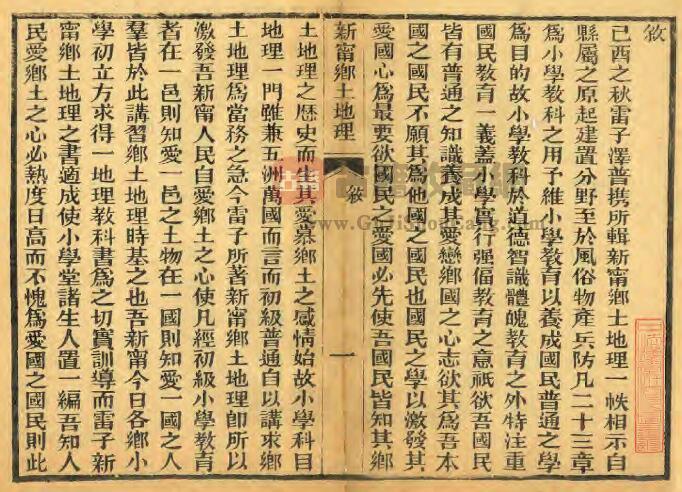 敘
己酉之秋雷子澤普携所輯新甯鄉土地理一帙相示自
縣屬之原起建置分野至於風俗物產兵防凡二十三章
爲小學教科之用予維小學教育以養成國民普通之學
爲目的故小學教科於道德智識體魄教育之外特注重
國民教育一義蓋小學實行强偪教育之意祇欲吾國民
皆有普通之知識養成其愛戀鄉國之心志欲其爲吾本
國之國民不願其爲他國之國民也國民之學以激發其
愛國心爲最要欲國民之愛國必先使吾國民皆知其鄉
新甯鄉土地理
敘
一
土地理之歷史而生其愛慕鄉土之感情始故小學科目
地理一門雖兼五洲萬國而言而初級普通自以講求鄉
土地理爲當務之急今雷子所著新甯鄉土地理卽所以
激發吾新甯人民自愛鄉土之心使凡經初級小學教育
者在一邑則知愛一邑之土物在一國則知愛一國之人
羣皆於此講習鄉土地理時基之也吾新甯今日各鄉小
學初立方求得一地理教科書爲之切實訓導而雷子新
甯鄉土地理之書適成使小學堂諸生人置一編吾知人
民愛鄉土之心必熱度日高而不愧爲愛國之國民則此
www.GujiShoucang.com